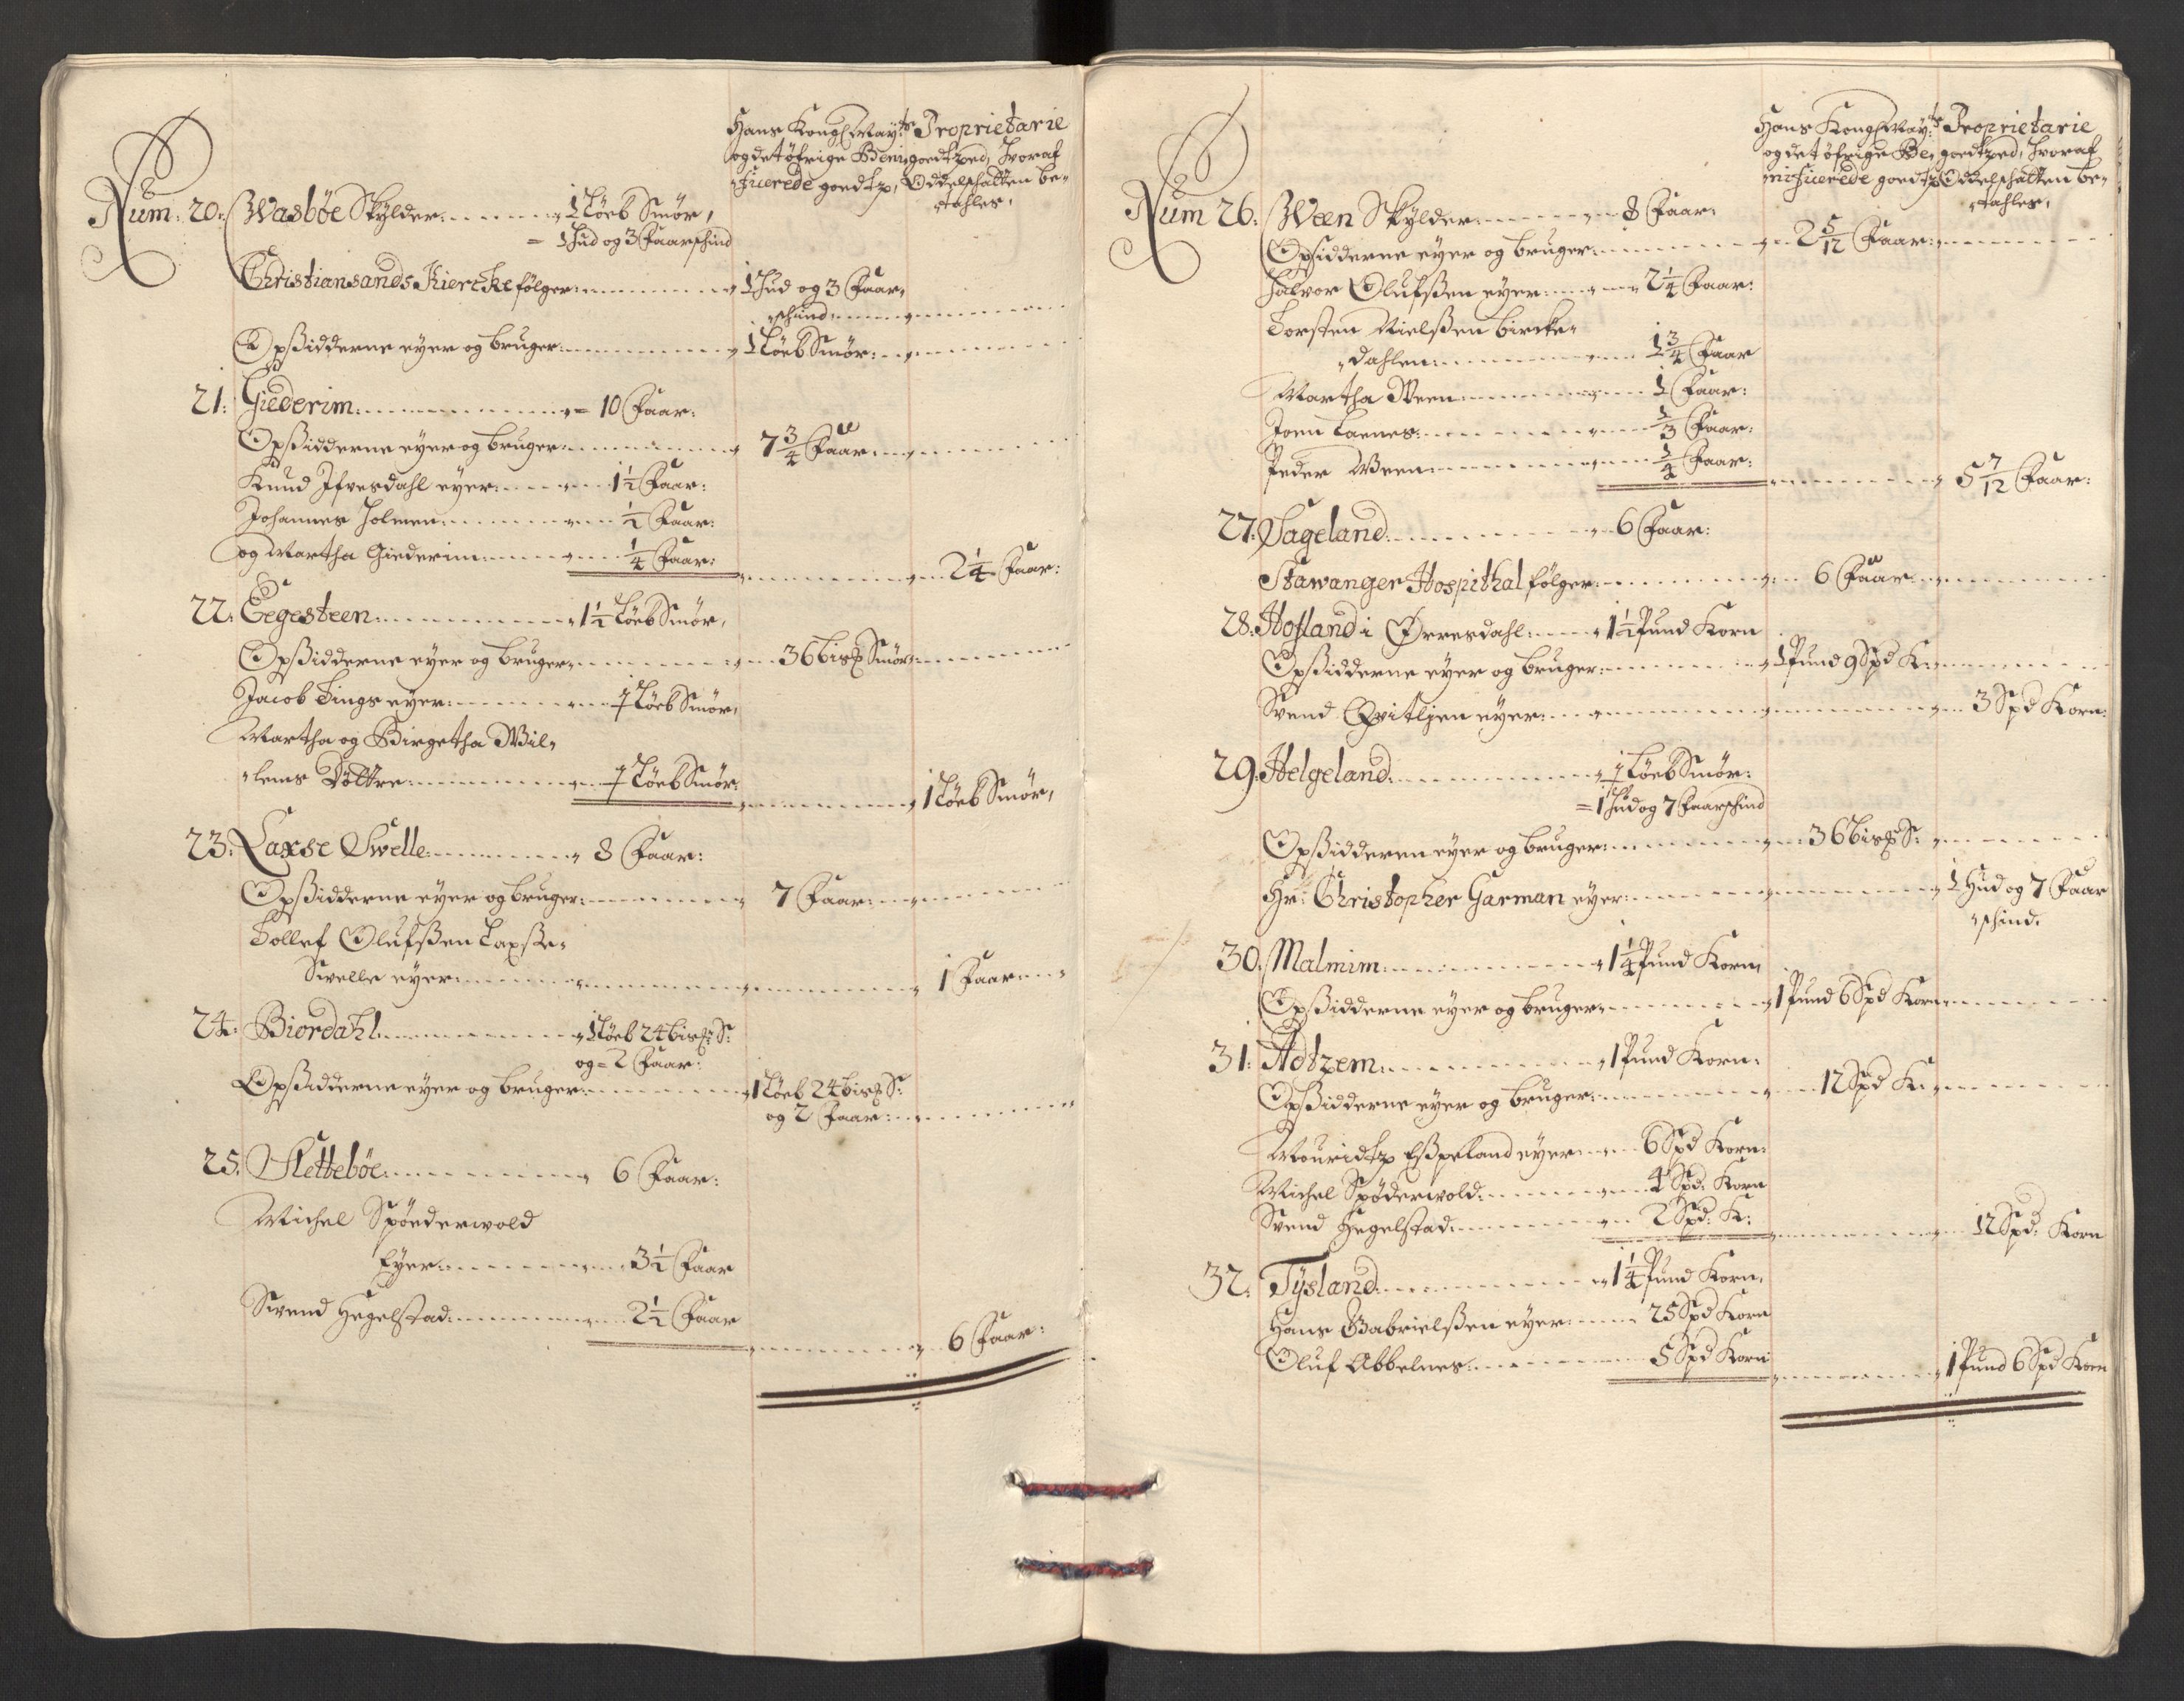 Hans Kongl May:ts Proprietarie
og det öfrige Beni- goedtzed, hvoraf
ficerede goedtz, Oddelschatten be-
tahles,
Num: 20: Wasböe Skylder 1 Löeb Smör,
= 1 Hud og 3 Faarschind
Christiansands Kiercke følger 1 Hud og 3 Faar-
schind
Opsidderne eyer og bruger 1 Löeb Smör:
21: Giederim = 10 Faar:
Opsidderne eyer og bruger 7 3/4 Faar
Knud Ifvesdahl eyer 1 1/2 Faar:
Johannes Holmen 1/2 Faar:
og Martha Giederim 1/4 Faar: 2 1/4 Faar:
22: Eegesteen 1 1/2 Löeb Smör,
Opsidderne eyer og bruger 36 bispd Smör
Jacob Tings eyer 1/2 Löeb Smör,
Martha og Birgetha Wil-
lems Döttre 1/2 Löeb Smör: 1 Löeb Smör,
23: Laxse Swelle 8 Faar:
Opsidderne eyer og bruger 7 Faar
Tollef Olufsen Laxse-
Swelle eyer 1 Faar
24: Biordahl 1 Löeb 24 bispd S:
og = 2 Faar:
Opsidderne eyer og bruger 1 Löeb 24 bispd S:
og 2 Faar
25: Sletteböe 6 Faar:
Michel Spöederwold
Eyer 3 1/2 Faar
Swend Hegelstad 2 1/2 Faar 6 Faar:
Hans Kongl May:ts Proprietarie
og det öfrige Be- goedtzed, hvoraf
nificerede goedtz Oddelschatten be-
tahles,
Num 26: Ween Skylder 8 Faar:
Opsidderne eyer og bruger 2 5/12 Faar
Halvor Olufsen eyer 2 1/4 Faar:
Torsten Nielsen bircke-
dahlen 1 3/4 Faar
Martha Ween 1 Faar:
Joen Laenes 1/3 Faar:
Peder Ween 1/4 Faar: 5 7/12 Faar:
27: Sageland 6 Faar:
Stawanger Hospithal følger 6 Faar
28: Hofland i Ørresdahl 1 1/2 Pund Korn
Opsidderne eyer og bruger 1 Pund 9 Spd K:
Svend Qvitljen eyer 3 Spd Korn:
29: Helgeland 1/2 Löeb Smör:
= 1 Hud og 7 Faarschind
Opsidderen eyer og bruger 36 bispd S:
Hr: Christopher Garman eyer 1 Hud og 7 Faar
schind.
30: Malmim 1 1/4 Pund Korn
Opsidderne eyer og bruger 1 Pund 6 Spd Korn
31: Adtzem 1 Pund Korn:
Opsidderne eyer og bruger 12 Spd K:
Mouridtz Espeland eyer 6 Spd Korn:
Michel Spöderwold 4 Spd: Korn
Svend Hegelstad 2 Spd: K: 12 Spd: Korn
32: Tysland 1 1/4 Pund Korn,
Hans Gabrielsen eyer 25 Spd Korn
Oluf Abbelnes 5 Spd Korn 1 Pund 6 Spd Korn